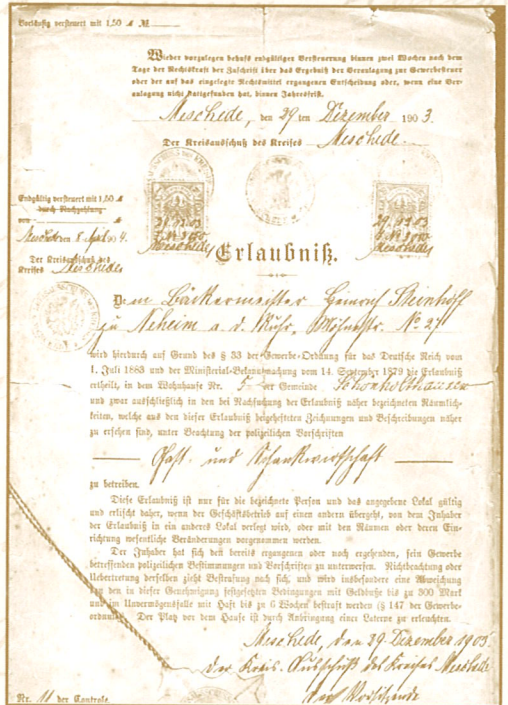 Vorläufig versteuert mit 1,50 ℳ №
Wieder vorzulegen behufs endgültiger Versteuerung binnen zwei Wochen nach dem
Tage der Rechtskraft der Zuschrift über das Ergebniß der Veranlagung zur Gewerbesteuer
oder der auf das eingelegte Rechtsmittel ergangenen Entscheidung oder, wenn eine Ver-
anlagung nicht stattgefunden hat, binnen Jahresfrist.
Meschede, den 29 ten Dezember 1903.
Der Kreisausschuß des Kreises Meschede.
Endgültig versteuert mit 1,50 ℳ
durch Nachzahlung
von
Meschede den 8. April 04.
Der Kreisausschuß des
Kreises Meschede
29.12.03
Meschede
Meschede
Erlaubniß.
Dem Bäckermeister Heinrich Steinhoff
zu Neheim a. d. Ruhr, Möhnestr. No 27
wird hierdurch auf Grund des § 33 der Gewerbe-Ordnung für das Deutsche Reich vom
1. Juli 1883 und der Ministerial-Bekanntmachung vom 14. September 1879 die Erlaubniß
ertheilt, in dem Wohnhause Nr. 5 der Gemeinde Schönholthausen
und zwar ausschließlich in den bei Nachsuchung der Erlaubniß näher bezeichneten Räumlich-
keiten, welche aus den dieser Erlaubniß beigehefteten Zeichnungen und Beschreibungen näher
zu ersehen sind, unter Beachtung der polizeilichen Vorschriften
Gast- und Schankwirtschaft
zu betreiben.
Diese Erlaubniß ist nur für die bezeichnete Person und das angegebene Lokal gültig
und erlischt daher, wenn der Geschäftsbetrieb auf einen andern übergeht, von dem Inhaber
der Erlaubniß in ein anderes Lokal verlegt wird, oder mit den Räumen oder deren Ein-
richtung wesentliche Veränderungen vorgenommen werden.
Der Inhaber hat sich den bereits ergangenen oder noch ergehenden, sein Gewerbe
betreffenden polizeilichen Bestimmungen und Vorschriften zu unterwerfen. Nichtbeachtung oder
Uebertretung derselben zieht Bestrafung nach sich, und wird insbesondere eine Abweichung
von den in dieser Genehmigung festgesetzten Bedingungen mit Geldbuße bis zu 300 Mark
und im Unvermögensfalle mit Haft bis zu 6 Wochen bestraft werden (§ 147 der Gewerbe-
ordnung). Der Platz vor dem Hause ist durch Anbringung einer Laterne zu erleuchten.
Meschede, den 29. Dezember 1903
der Kreis-Ausschuß des Kreises Meschede
der Vorsitzende
Nr. 11 der Controle.